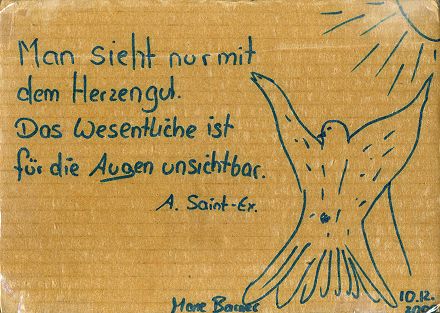 Man sieht nur mit
dem Herzen gut.
Das Wesentliche ist
für die Augen unsichtbar.
A. Saint-Ex.
10.12.